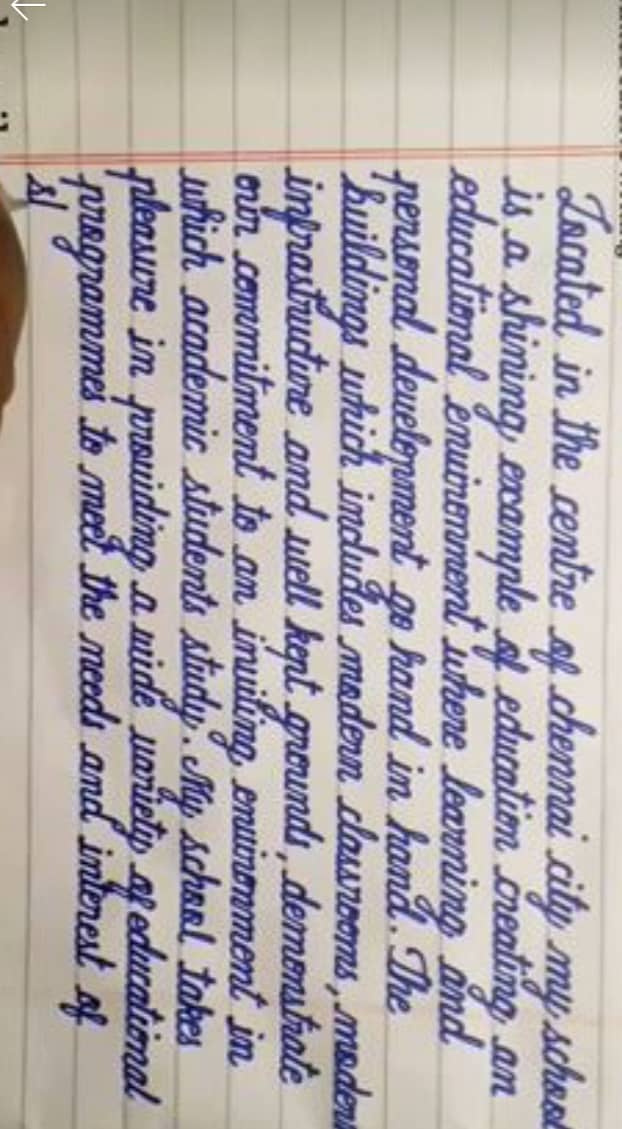 Located in the centre of chennai city my school
is a shining example of education creating an
educational environment where learning and
personal development go hand in hand. The
buildings which includes modern classrooms, modern
infrastructure and well kept grounds, demonstrate
our commitment to an inviting environment in
which academic students study. My school takes
pleasure in providing a wide variety of educational
programmes to meet the needs and interest of